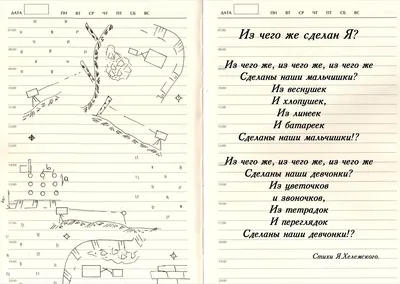 ДАТА ПН ВТ СР ЧТ ПТ СБ ВС
a
ДАТА ПН ВТ СР ЧТ ПТ СБ ВС
Из чего же сделан Я?
Из чего же, из чего же, из чего же
Сделаны наши мальчишки?
Из веснушек
И хлопушек,
Из линеек
И батареек
Сделаны наши мальчишки!?
Из чего же, из чего же, из чего же
Сделаны наши девчонки?
Из цветочков
и звоночков,
Из тетрадок
И переглядок
Сделаны наши девчонки!?
Стихи Я.Хелемского.